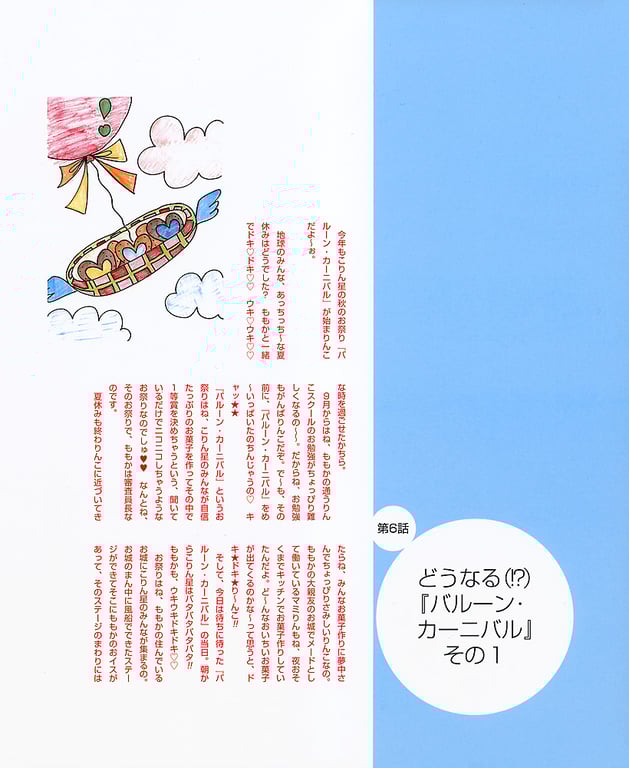 第6話
どうなる(!?)
『バルーン・
カーニバル』
その1
今年もこりん星の秋のお祭り「バ
ルーン・カーニバル」が始まりんこ
だよ〜ぉ。
地球のみんな、あっちっち〜な夏
休みはどうでした? ももかと一緒
でドキ♡ドキ♡♡ ウキ♡ウキ♡♡
な時を過ごせたかちら。
9月からはね、ももかの通うりん
こスクールのお勉強がちょっぴり難
しくなるの〜〜。だからね、お勉強
もがんばりんこだぞ。で〜も、その
前に、「バルーン・カーニバル」をめ
〜いっぱいたのちんじゃうの♡ キ
ャッ★★
「バルーン・カーニバル」というお
祭りはね、こりん星のみんなが自信
たっぷりのお菓子を作ってその中で
1等賞を決めちゃうという、聞いて
いるだけでニコニコしちゃうような
お祭りなのでしゅ♥♥ なんとね、
そのお祭りで、ももかは審査員長な
のです。
夏休みも終わりんこに近づいてき
たらね、みんなお菓子作りに夢中さ
んでちょっぴりさみしいりんこなの。
ももかの大親友のお城でメードとし
て働いているマミりんもね、夜おそ
くまでキッチンでお菓子作りしてい
たんだよ。ど〜んなおいちいお菓子
が出てくるのかな〜って思うと、ド
キ★ドキ★り〜んこ!!
そして、今日は待ちに待った「バ
ルーン・カーニバル」の当日。朝か
らこりん星はバタバタバタバタ!!
ももかも、ウキウキドキドキ♡♡
お祭りはね、ももかの住んでいる
お城にこりん星のみんなが集まるの。
お城のまん中に風船でできたステー
ジができてそこにももかのおイスが
あって、そのステージのまわりには